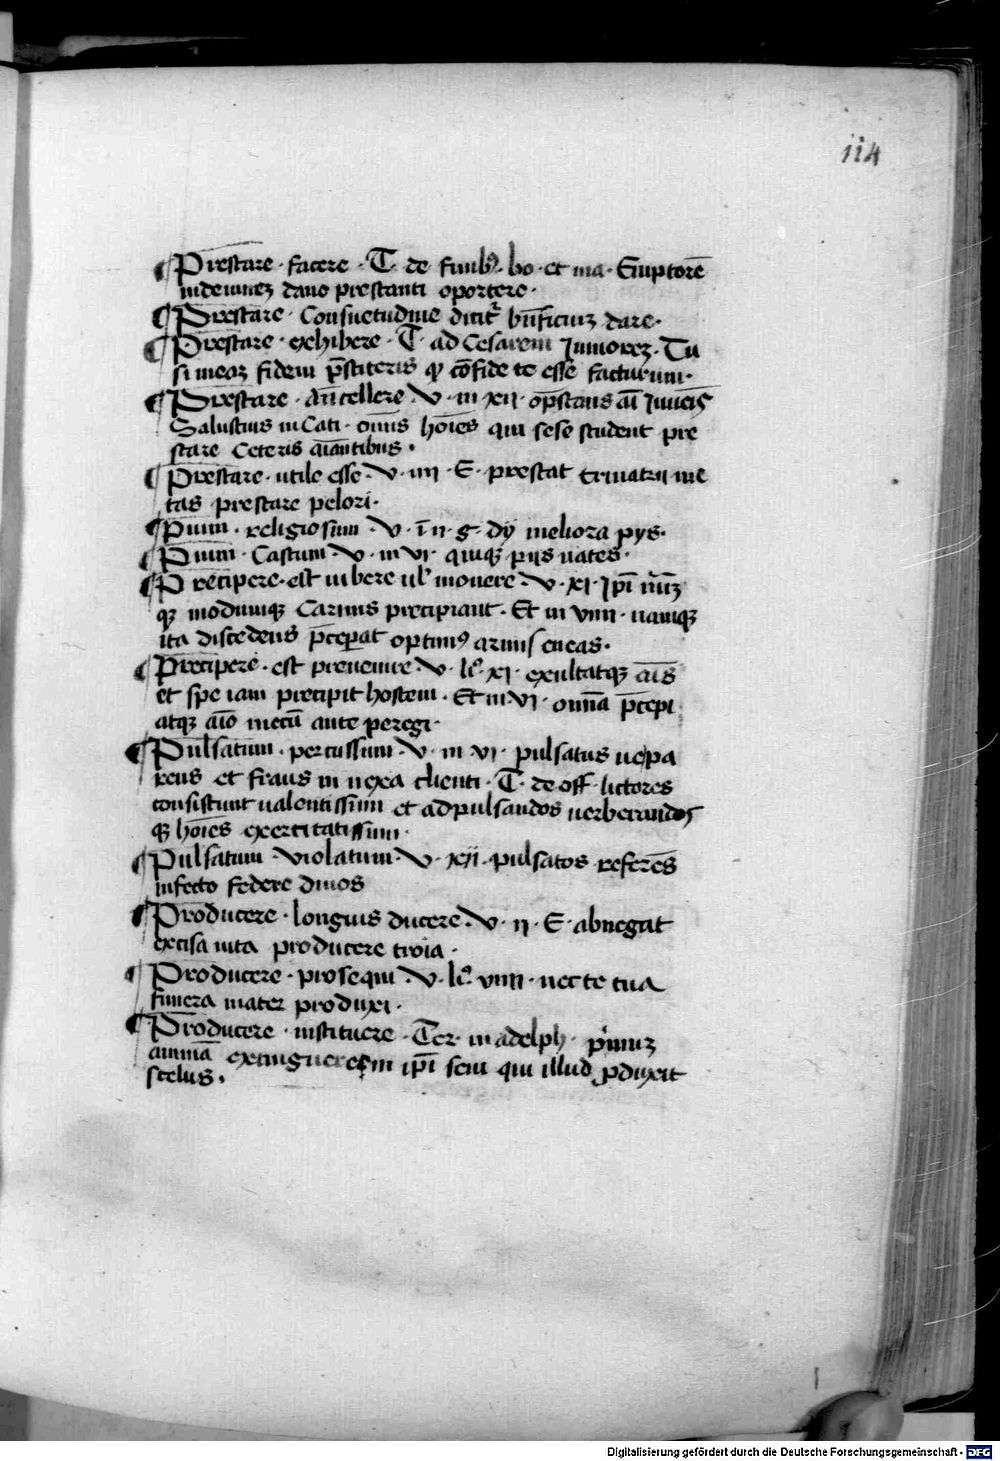 114
¶ Prestare · facere · T · de finib9 · bo · et ma · Emptorē
indemneʒ dano prestanti oportere ·
¶ Prestare · Consuetudine dicit᷑ bn̄ficiuʒ dare ·
¶ Prestare · exhibere · T · ad Cesarem Junioreʒ · Tu
si meaʒ fidem p̄stiteris qͥ cōfide te esse facturum ·
¶ Prestare · An̄cellere · v · in xii · op̄stans aī Juveīs
Salustius in Cati · om̄is hoīes qui sese student pre
stare Ceteris aīantibus ·
¶ Prestare · utile esse · v · iii · E · prestat trinatrii me
tas prestare pelori ·
¶ Pium · religiosum · v · in g · dij meliora pijs ·
¶ Pium · Castum · v · in vi · quiqʒ pijs uates ·
¶ Precipere · est iubere ul' monere · v · xi · Ip̄i
qʒ modumqʒ Carinis precipiant · Et in viiii · namqʒ
ita discedens p̄ceperat optim9 armis eneas ·
¶ Precipere · est prevenire · v · li͛ · xi · exultatqʒ aīs
et spe iam precipit hostem · Et in vi · omīa p̄cepi
atqʒ aīo mecū ante peregi ·
¶ Pulsatum · percussum · v · in vi · pulsatus ue pa
rens et fraus in nexa clienti · T · de off · lictores
consistunt ualentissimi et ad pulsandos uerberandos
qʒ hoīes exercitatissimi ·
¶ Pulsatum · violatum · v · xii · pulsatos referēs
infecto federe divos
¶ Producere · longius ducere · v · ii · E · abnegat
excisa uita producere troia ·
¶ Producere · prosequi · v · li͛ · viiii · nec te tua
funera mater produxi ·
¶ Producere · instituere · Ter · in adelph · p̓muʒ
animā extinguerem ip̄i seni qui illud ꝓduxit
scelus ·
Digitalisierung gefördert durch die Deutsche Forschungsgemeinschaft - DFG